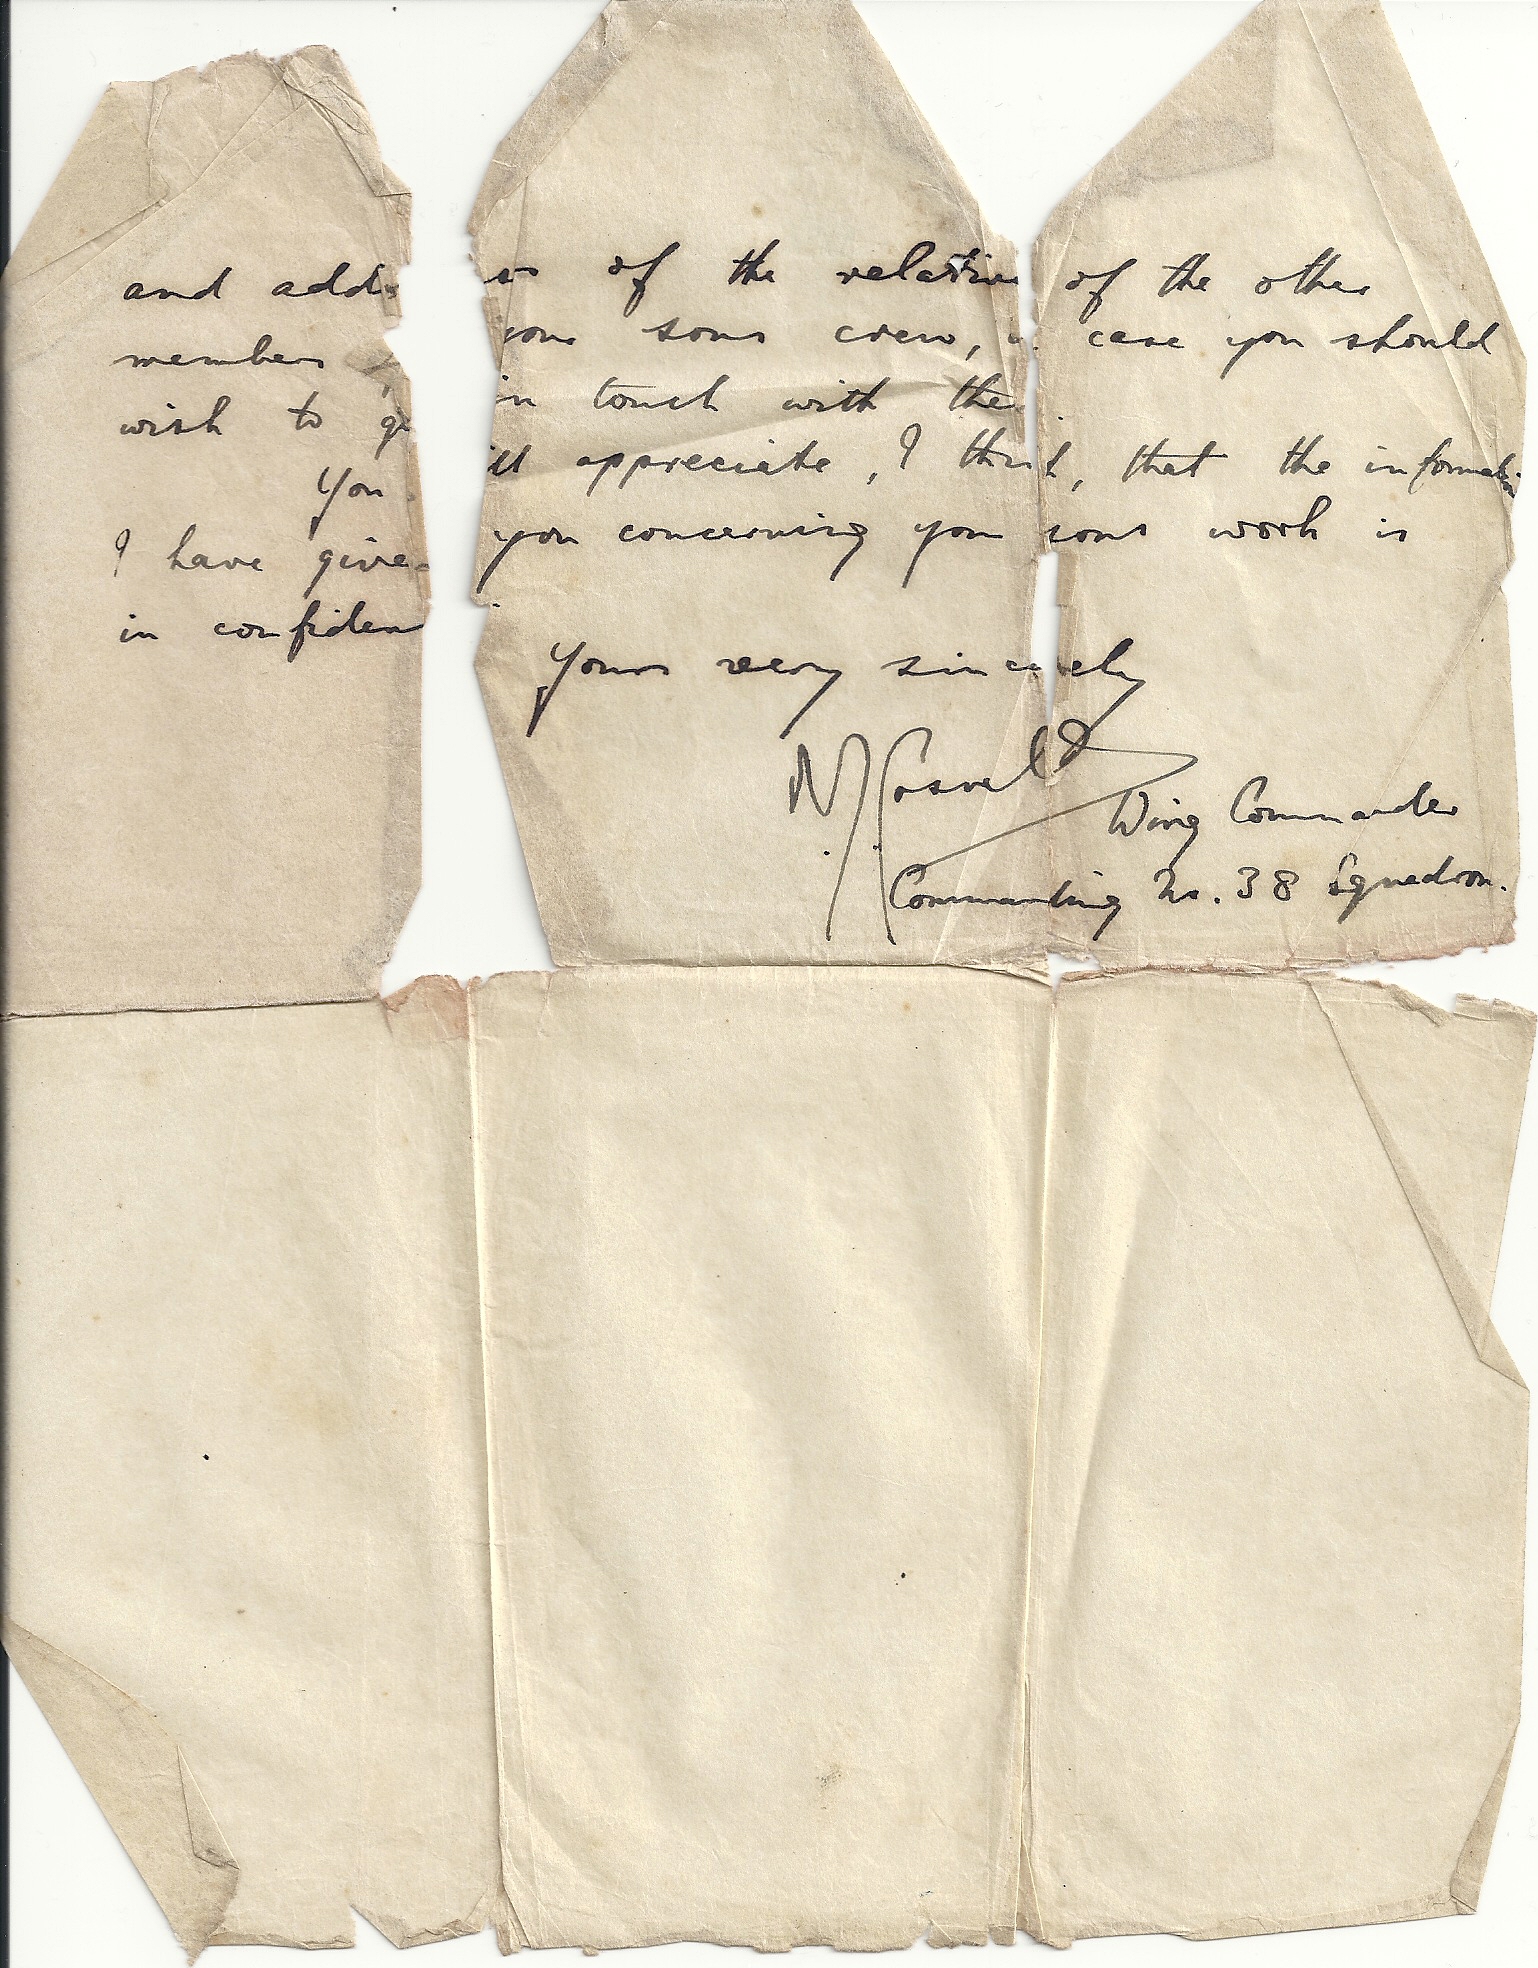 and addr ss of the relative of the other
members your sons crew, in case you should
wish to ge in touch with the
You ill appreciate, I think, that the information
I have given you concerning your sons work is
in confiden
Yours very sincerely
Wing Commander
Commanding No. 38 Squadron.